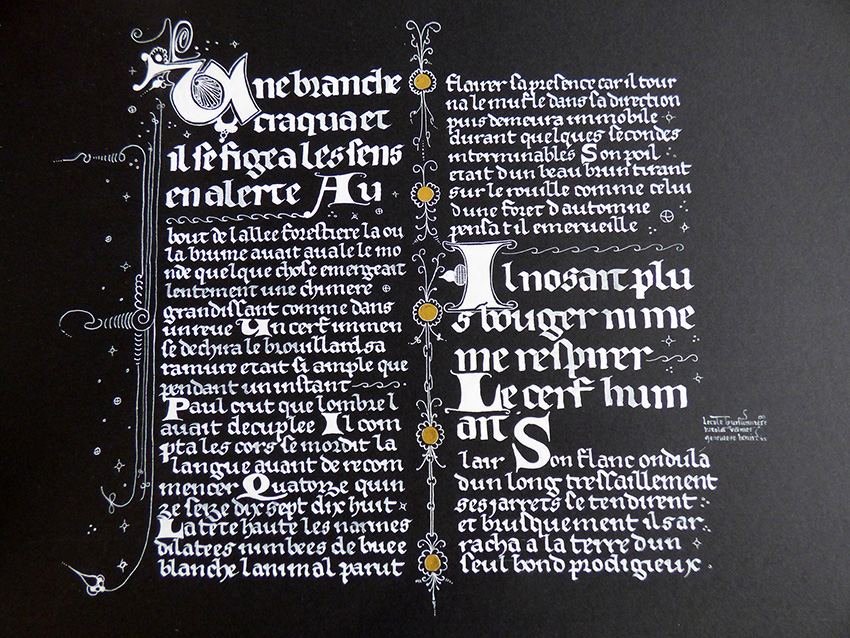 Une branche
craqua et
il se figea les sens
en alerte Au
bout de lallee forestiere la ou
la brume avait avale le mo
nde quelque chose emergeait
lentement une chimere
grandissant comme dans
un reve Un cerf immen
se dechira le brouillard sa
ramure etait si ample que
pendant un instant
Paul crut que lombre l
avait decuplee Il com
pta les cors se mordit la
langue avant de recom
mencer Quatorze quin
ze seize dix sept dix huit
La tete haute les narines
dilatees nimbees de buee
blanche lanimal parut
flairer sa presence car il tour
na le mufle dans sa direction
puis demeura immobile
durant quelques secondes
interminables Son poil
etait dun beau brun tirant
sur le rouille comme celui
dune foret dautomne
pensa t il emerveille
Il nosait plu
s bouger ni me
me respirer
Le cerf hum
ait
lair Son flanc ondula
dun long tressaillement
ses jarrets se tendirent
et brusquement il sar
racha a la terre dun
seul bond prodigieux